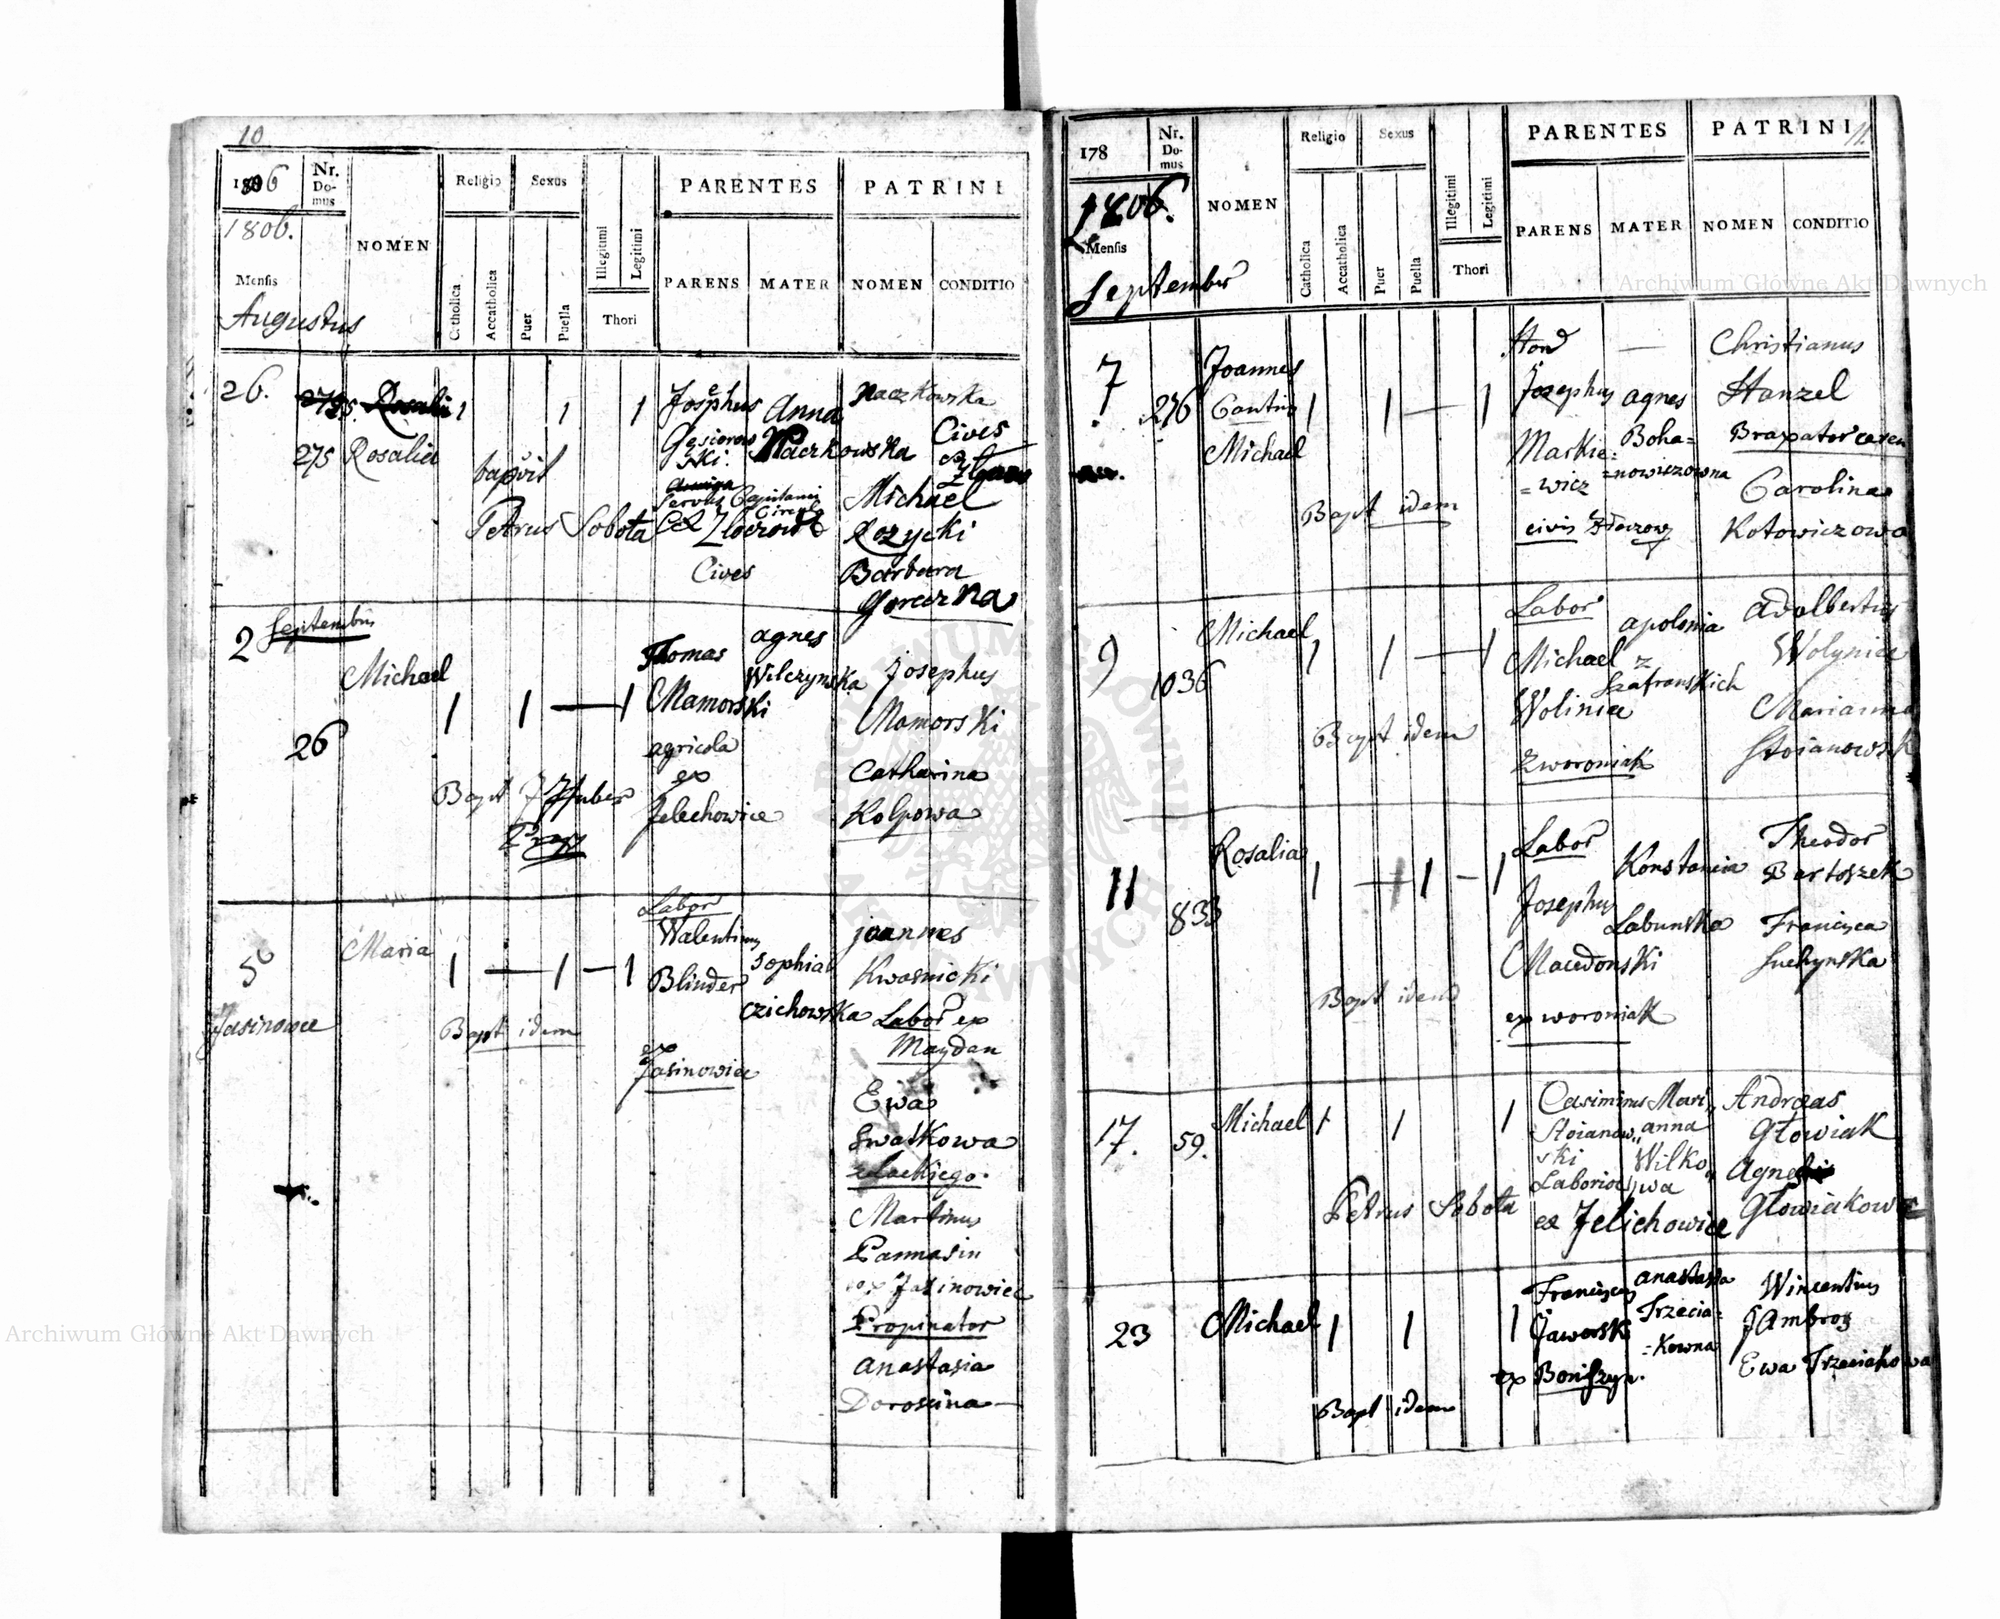 10
1806
Nr.
Do-
mus
NOMEN
Religio
Sexus
Illegitimi
Legitimi
PARENTES
PATRINI
1806.
Mensis
Augustus
Catholica
Accatholica
Puer
Puella
Thori
PARENS
MATER
NOMEN
CONDITIO
26.
275
Rosalia
1 1 1
bapvit
Petrus Sobota
Josephus
Gąsiorow
ski.
Servus Capitanei
Circuli
Cives
Anna
Naczkowska
Naczkowska
Cives
Michael
Rozycki
Barbara
Goreczna
2 Septembris
26
Michael
1 1 — 1
Bapt J Huber
Prep
Thomas
Mamorski
agricola
ex
Jelechowice
agnes
Wilczynska
Josephus
Mamorski
Catharina
Kolpowa
5
Jasinowce
Maria
1 — 1 — 1
Bapt idem
Labor
Walentinus
Blinder
ex
Jasinowiec
Sophia
Czichowska
joannes
Kwasnicki
Labor ex
Maydan
Ewa
Swatkowa
Martinus
Pannasin
ex Jasinowiec
Propinator
anastasia
Doroszina
11.
178
Nr.
Do-
mus
NOMEN
Religio
Sexus
Illegitimi
Legitimi
PARENTES
PATRINI
1806.
Mensis
September
Catholica
Accatholica
Puer
Puella
Thori
PARENS
MATER
NOMEN
CONDITIO
7
276
Joannes
Cantius
Michael
1 1 — 1
Bapt idem
Hon
Josephus
Markie=
=wicz
civis Zloczow
—
agnes
Boha=
=nowiczowna
Christianus
Hanzel
Braxator
Carolina
Kotowiczowa
9
1036
Michael
1 1 — 1
Bapt idem
Labor
Michael
Wolinia
z woroniak
apolonia
z
Szafranskich
Adalbertus
Wolynice
Marianna
Stoianowsk
11
833
Rosalia
1 — 1 — 1
Bapt idem
Labor
Josephus
Macedonski
ex woroniak
Konstancia
Labunska
Theodor
Bartoszek
Francisca
Suchynska
17.
59.
Michael
1 1 1
Petrus Sobota
Casimirus
Stoianow„
ski
Laborios
ex Jelichowice
Mari„
anna
Wilko„
wa
Andreas
Głowiak
Agnes
Głowiakowa
23
Michael
1 1 1
Bapt idem
Franciscus
Jaworski
ex Boniszyn.
anastasia
Trzecia=
=kowna
Wincentius
Jambroz
Ewa Trzeciakowa
Archiwum Główne Akt Dawnych
Archiwum Główne Akt Dawnych
ARCHIWUM GŁÓWNE AKT DAWNYCH